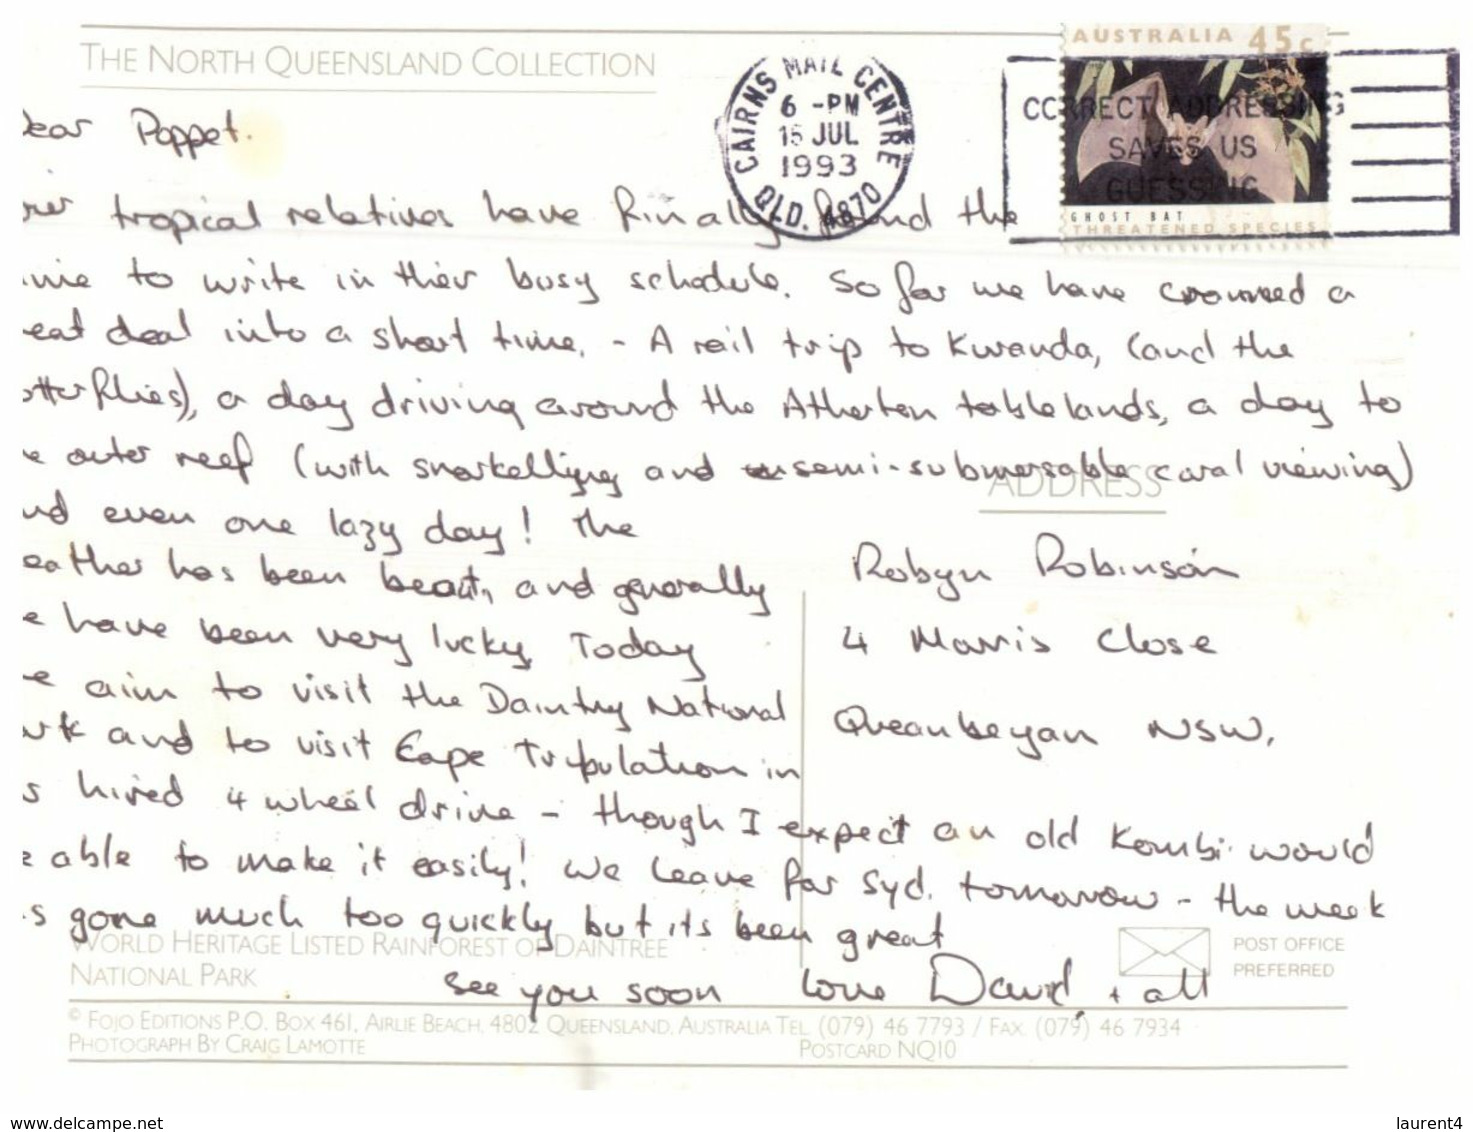 THE NORTH QUEENSLAND COLLECTION
CAIRNS MAIL CENTRE
6 -PM
15 JUL
1993
QLD. 4870
AUSTRALIA 45c
CORRECT ADDRESSING
SAVES US
GUESSING
GHOST BAT
THREATENED SPECIES
ear Poppet.
tropical relatives have finally found the
me to write in their busy schedule. So far we have crammed a
eat deal into a short time. - A rail trip to Kuranda, (and the
tterflies), a day driving around the Atherton tablelands, a day to
e outer reef (with snorkelling and semi-submersable coral viewing)
nd even one lazy day! The
eather has been beaut, and generally
e have been very lucky. Today
e aim to visit the Daintry National
ark and to visit Cape Tribulation in
s hired 4 wheel drive - though I expect an old Kombi would
e able to make it easily! We leave for Syd. tomorrow - the week
s gone much too quickly but its been great
See you soon love David + all
ADDRESS
Robyn Robinson
4 Morris Close
Queanbeyan NSW.
WORLD HERITAGE LISTED RAINFOREST OF DAINTREE
NATIONAL PARK
POST OFFICE
PREFERRED
© FOJO EDITIONS P.O. BOX 461, AIRLIE BEACH, 4802 QUEENSLAND, AUSTRALIA TEL (079) 46 7793 / FAX (079) 46 7934
PHOTOGRAPH BY CRAIG LAMOTTE
POSTCARD NQ10
www.delcampe.net
laurent4